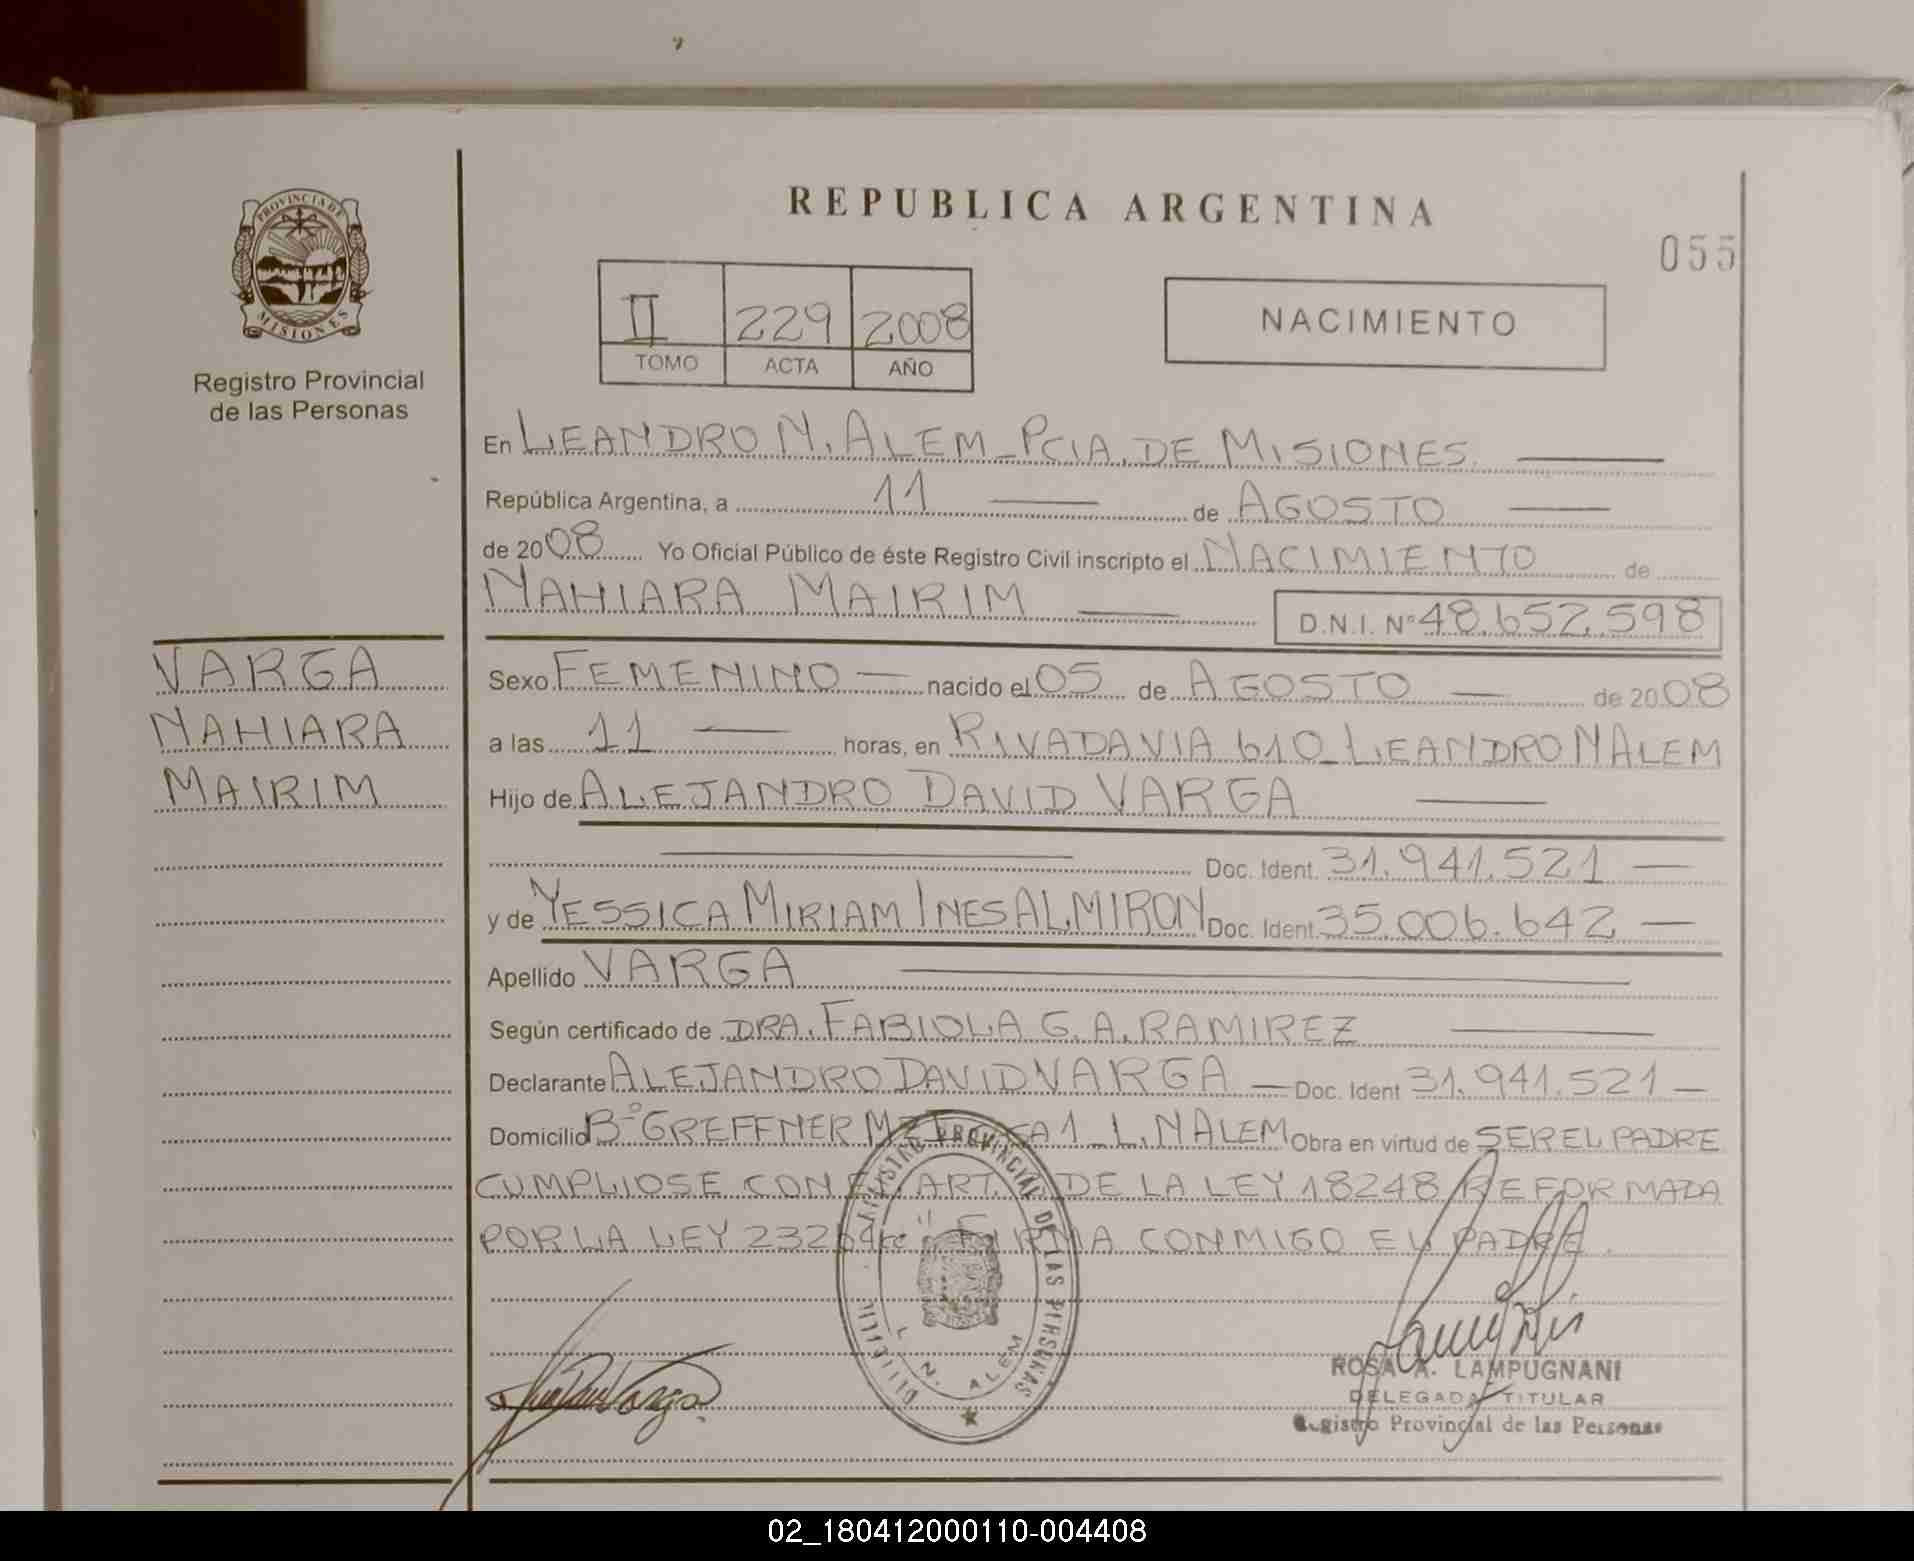 REPUBLICA ARGENTINA
055
PROVINCIA DE
MISIONES
Registro Provincial
de las Personas
II 229 2008
TOMO ACTA AÑO
NACIMIENTO
En LEANDRO N. ALEM - PCIA. DE MISIONES.
República Argentina, a 11 de AGOSTO
de 2008 Yo Oficial Público de éste Registro Civil inscripto el NACIMIENTO de
NAHIARA MAIRIM D.N.I. Nº 48.652.598
VARGA
NAHIARA
MAIRIM
Sexo FEMENINO nacido el 05 de AGOSTO de 2008
a las 11 horas, en RIVADAVIA 610 - LEANDRO N ALEM
Hijo de ALEJANDRO DAVID VARGA
Doc. Ident. 31.941.521
y de YESSICA MIRIAM INES ALMIRON Doc. Ident. 35.006.642
Apellido VARGA
Según certificado de DRA. FABIOLA G. A. RAMIREZ
Declarante ALEJANDRO DAVID VARGA Doc. Ident 31.941.521
Domicilio Bº GREFFNER MZ 1 - L. N ALEM Obra en virtud de SER EL PADRE
CUMPLIOSE CON ART. DE LA LEY 18248 REFORMADA
POR LA LEY 23264 FIRMA CONMIGO EL PADRE.
REGISTRO PROVINCIAL DE LAS PERSONAS
L. N. ALEM
ROSA A. LAMPUGNANI
DELEGADA TITULAR
Registro Provincial de las Personas
02_180412000110-004408